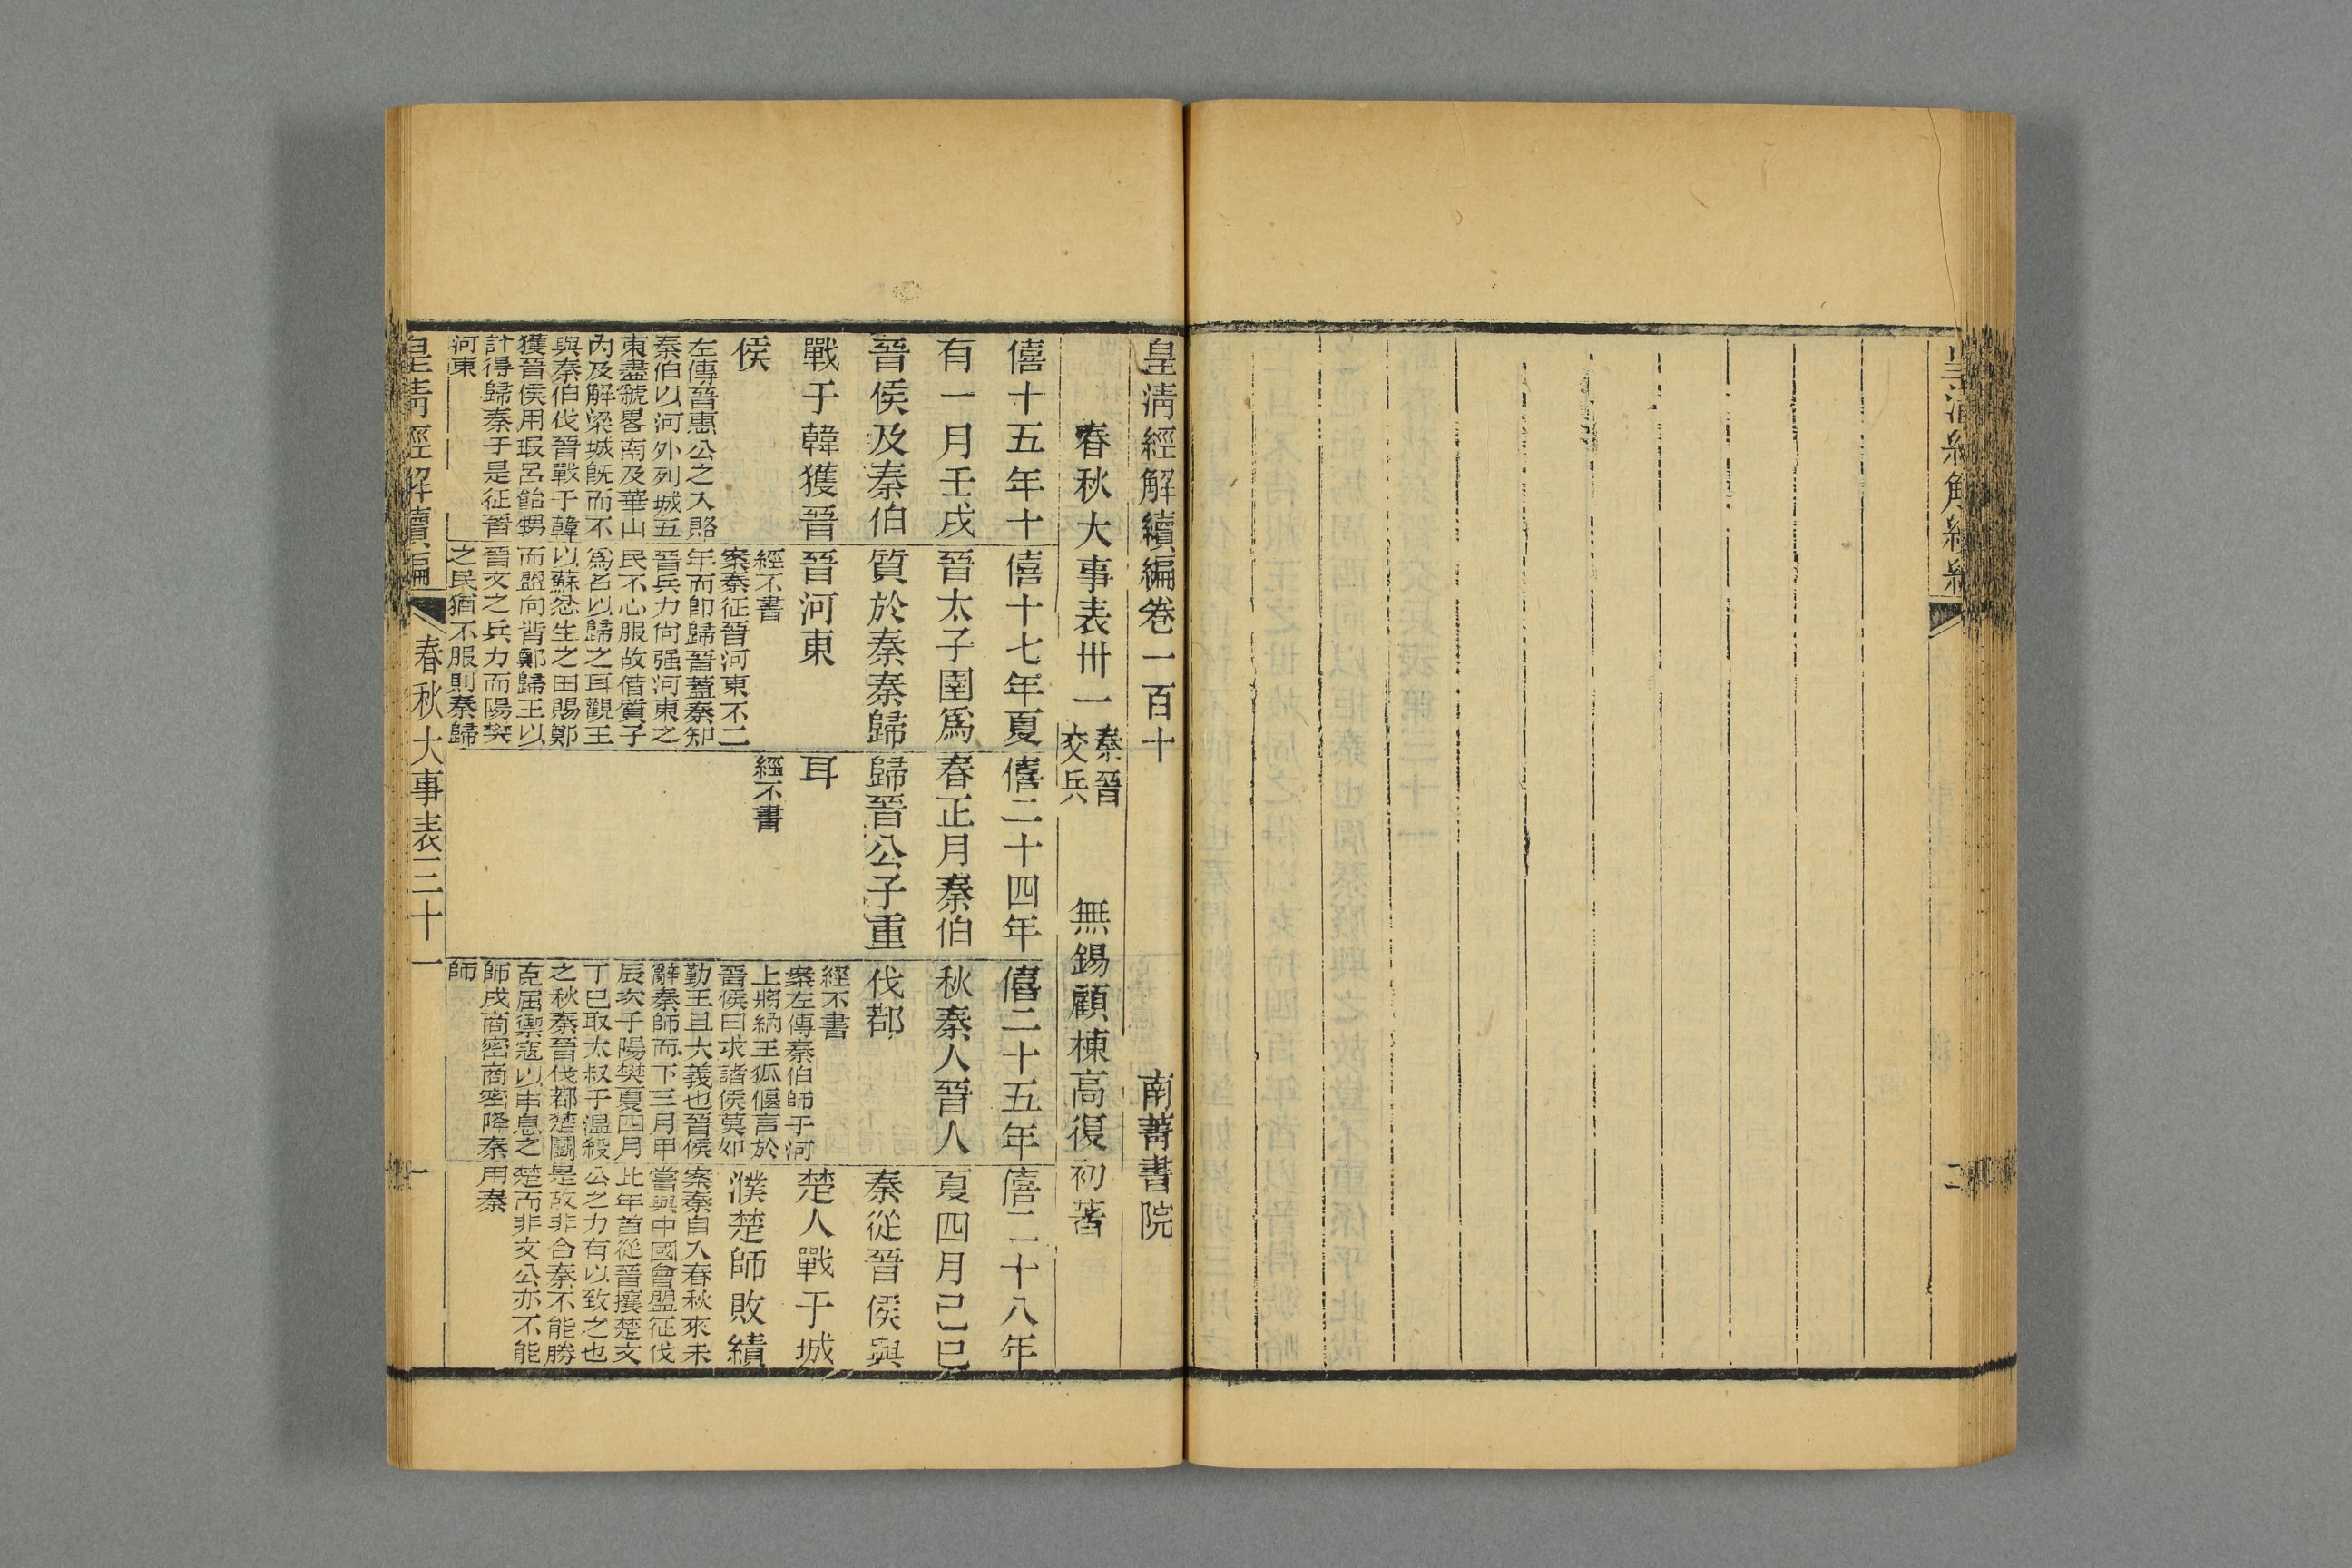 皇清經解續編
二
皇清經解續編卷一百十
南菁書院
春秋大事表卅一
秦晉
交兵
無錫顧棟高復初著
僖十五年十
有一月壬戌
晉侯及秦伯
戰于韓獲晉
侯
左傳晉惠公之入賂
秦伯以河外列城五
東盡虢畧南及華山
內及解梁城既而不
與秦伯伐晉戰于韓
獲晉侯用瑕呂飴甥
計得歸秦于是征晉
河東
僖十七年夏
晉太子圉爲
質於秦秦歸
晉河東
經不書
案秦征晉河東不二
年而即歸晉蓋秦知
晉兵力尙强河東之
民不心服故借質子
爲名以歸之耳觀王
以蘇忿生之田賜鄭
而盟向背鄭歸王以
晉文之兵力而陽樊
之民猶不服則秦歸
僖二十四年
春正月秦伯
歸晉公子重
耳
經不書
僖二十五年
秋秦人晉人
伐鄀
經不書
案左傳秦伯師于河
上將納王狐偃言於
晉侯曰求諸侯莫如
勤王且大義也晉侯
辭秦師而下三月甲
辰次于陽樊夏四月
丁巳取太叔于溫殺
之秋秦晉伐鄀楚鬭
克屈禦寇以申息之
師戍商密商密降秦
師
僖二十八年
夏四月己巳
秦從晉侯與
楚人戰于城
濮楚師敗績
案秦自入春秋來未
嘗與中國會盟征伐
此年首從晉攘楚文
公之力有以致之也
是故非合秦不能勝
楚而非文公亦不能
用秦
皇清經解續編
春秋大事表三十一
一